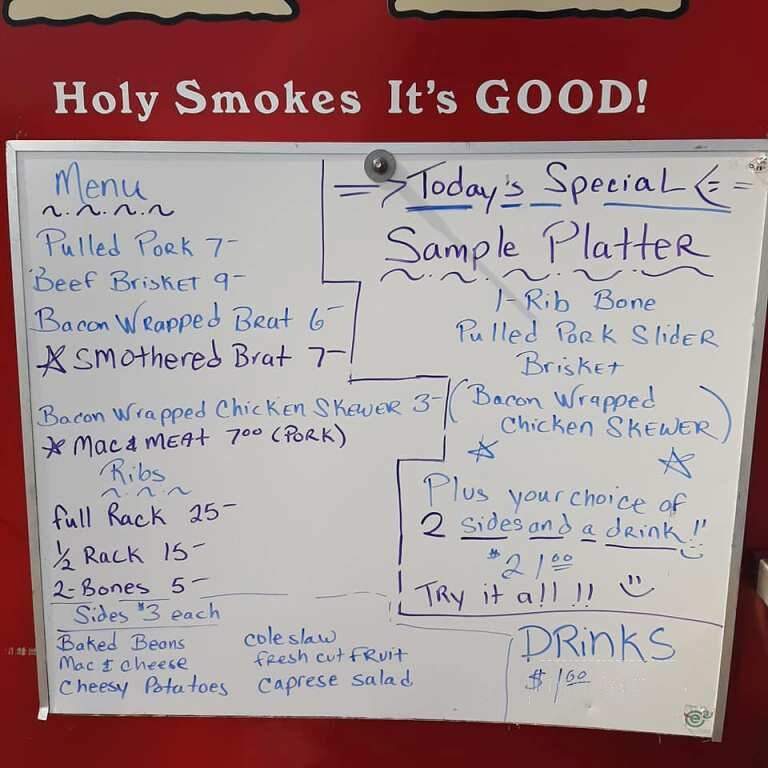 Holy Smokes It's GOOD!
Menu
Pulled Pork 7-
Beef Brisket 9-
Bacon Wrapped Brat 6-
☆ Smothered Brat 7-
Bacon Wrapped Chicken Skewer 3-
☆ Mac & Meat 7.00 (Pork)
Ribs
full Rack 25-
1/2 Rack 15-
2-Bones 5-
Sides $3 each
Baked Beans
Mac & Cheese
Cheesy Potatoes
coleslaw
fresh cut fruit
Caprese salad
=> Today's Special <=
Sample Platter
1-Rib Bone
Pulled Pork Slider
Brisket
(Bacon Wrapped
Chicken Skewer)
Plus your choice of
2 sides and a drink!!
$21.00
Try it all!!!
Drinks
$1.00